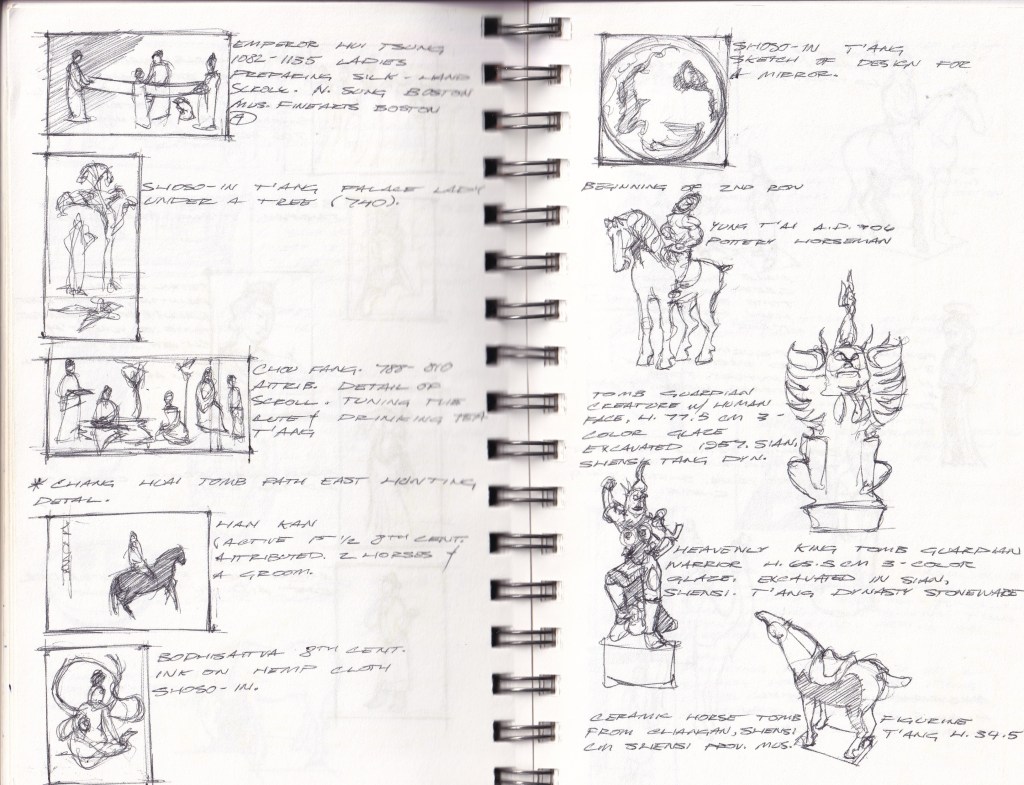 EMPEROR HUI TSUNG
1082-1135 LADIES
PREPARING SILK - HAND
SCROLL. N. SUNG BOSTON
MUS. FINE ARTS BOSTON
SHOSO-IN T'ANG PALACE LADY
UNDER A TREE (740).
CHOU FANG. 788-810
ATTRIB. DETAIL OF
SCROLL. TUNING THE
LUTE & DRINKING TEA
T'ANG
* CHANG HUAI TOMB PATH EAST HUNTING
DETAIL.
HAN KAN
(ACTIVE 1ST 1/2 8TH CENT.
ATTRIBUTED. 2 HORSES &
A GROOM.
BODHISATTVA 8TH CENT.
INK ON HEMP CLOTH
SHOSO-IN.
SHOSO-IN T'ANG
SKETCH OF DESIGN FOR
A MIRROR.
BEGINNING OF 2ND ROW
YUNG T'AI A.D. 706
POTTERY HORSEMAN
TOMB GUARDIAN
CREATURE W/ HUMAN
FACE, H. 77.5 CM 3-
COLOR GLAZE
EXCAVATED 1957. SIAN,
SHENSI TANG DYN.
HEAVENLY KING TOMB GUARDIAN
WARRIOR H. 65.5 CM 3-COLOR
GLAZE. EXCAVATED IN SIAN,
SHENSI. T'ANG DYNASTY STONEWARE
CERAMIC HORSE TOMB FIGURINE
FROM CHANGAN, SHENSI T'ANG H. 39.5
CM SHENSI PROV. MUS.